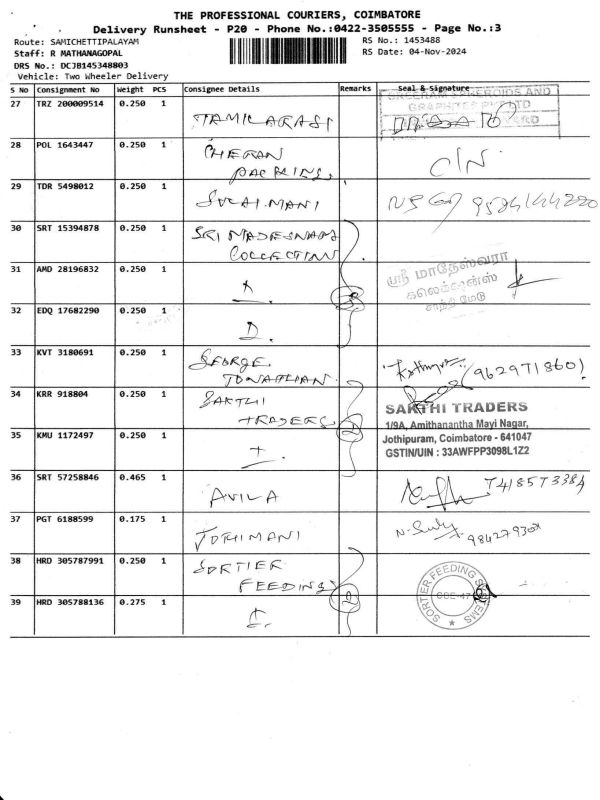 THE PROFESSIONAL COURIERS, COIMBATORE
Delivery Runsheet - P20 - Phone No.:0422-3505555 - Page No.:3
Route: SAMICHETTIPALAYAM RS No.: 1453488
Staff: R MATHANAGOPAL RS Date: 04-Nov-2024
DRS No.: DCJB145348803
Vehicle: Two Wheeler Delivery
S No Consignment No Weight PCS Consignee Details Remarks Seal & Signature
27 TRZ 200009514 0.250 1 TAMILARASI
28 POL 1643447 0.250 1 CHERAN
PACKINS C/N
29 TDR 5498012 0.250 1 SULAIMANI
30 SRT 15394878 0.250 1 SRI MADESWARA
COLLECTION
ஸ்ரீ மாதேஸ்வரா
கலெக்ஷன்ஸ்
31 AMD 28196832 0.250 1
32 EDQ 17682290 0.250 1 D.
33 KVT 3180691 0.250 1 GEORGE
JONATHAN (9629718601)
34 KRR 918804 0.250 1 SAKTHI
TRADERS 2
SAKTHI TRADERS
1/9A, Amithanantha Mayi Nagar,
Jothipuram, Coimbatore - 641047
GSTIN/UIN : 33AWFPP3098L1Z2
35 KMU 1172497 0.250 1
36 SRT 57258846 0.465 1 AVILA 7418573384
37 PGT 6188599 0.175 1 JOTHIMANI
38 HRD 305787991 0.250 1 SORTIER
FEEDING
SORTIER FEEDING SYSTEMS
39 HRD 305788136 0.275 1 2